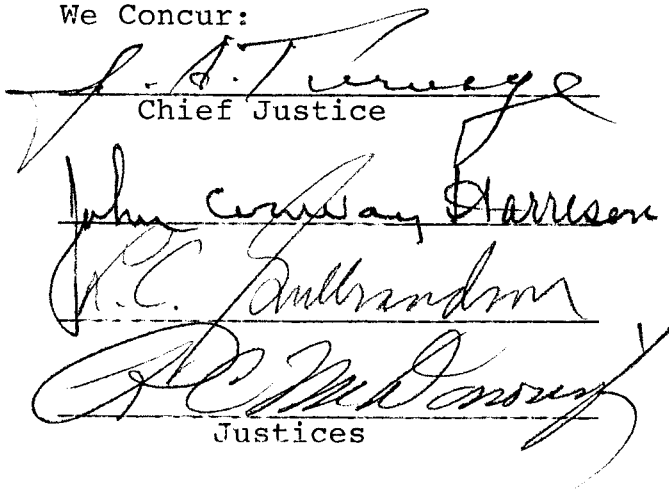 We Concur:
J. A. Turnage
Chief Justice
John Conway Harrison
L. C. Gulbrandson
R. C. McDonough
Justices